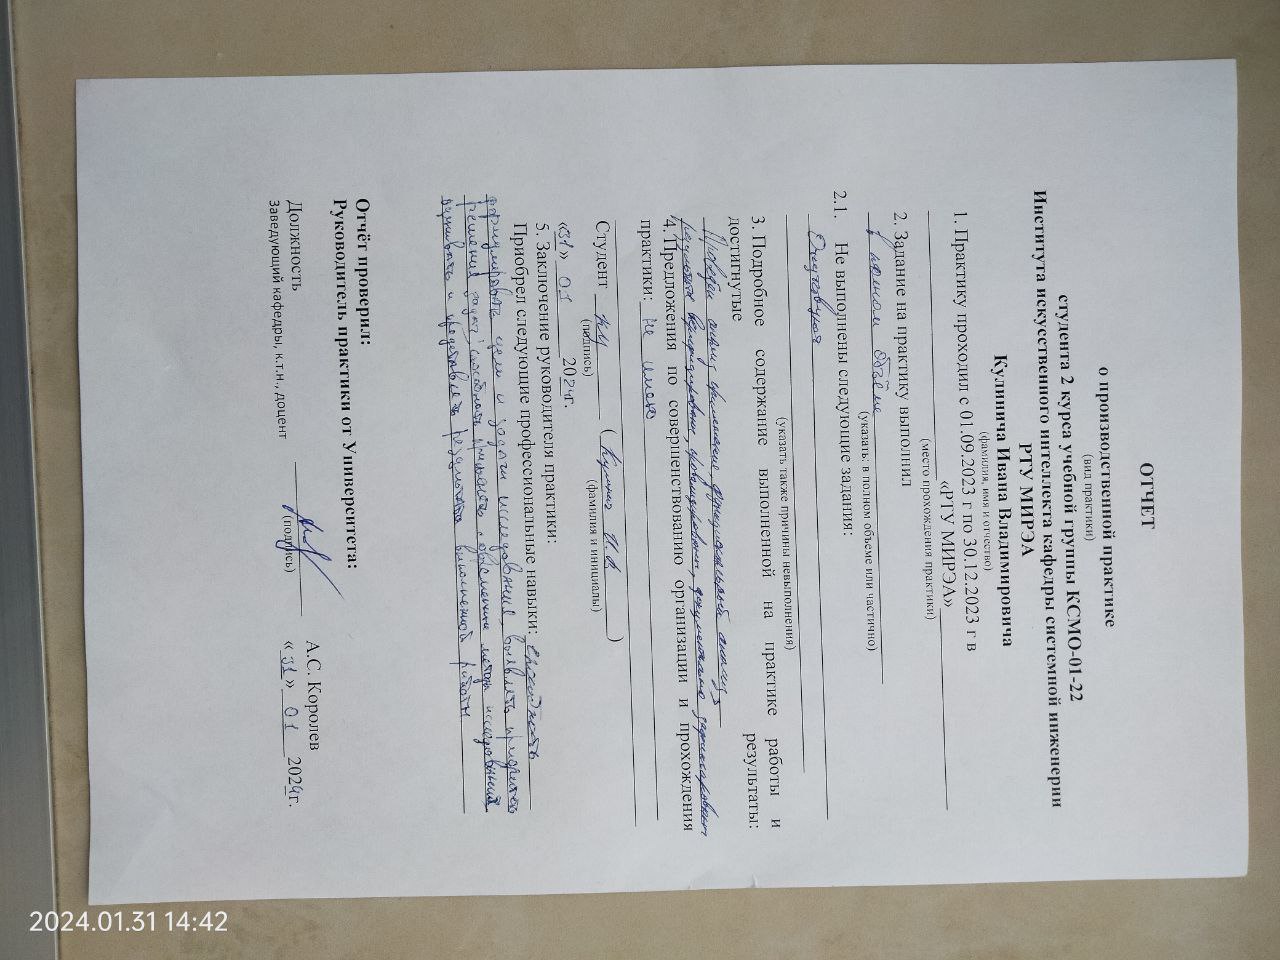 ОТЧЕТ
о производственной практике
(вид практики)
студента 2 курса учебной группы КСМО-01-22
Института искусственного интеллекта кафедры системной инженерии
РТУ МИРЭА
Кулинича Ивана Владимировича
(фамилия, имя и отчество)
1. Практику проходил с 01.09.2023 г по 30.12.2023 г в
«РТУ МИРЭА»
(место прохождения практики)
2. Задание на практику выполнил
в полном объёме
(указать: в полном объеме или частично)
2.1. Не выполнены следующие задания:
Отсутствуют
(указать также причины невыполнения)
3. Подробное содержание выполненной на практике работы и
достигнутые результаты:
Проведён анализ функциональный анализ
результаты
4. Предложения по совершенствованию организации и прохождения
практики: не имею
Студент (Кулинич И.В.)
(подпись) (фамилия и инициалы)
«31» 01 2024г.
5. Заключение руководителя практики:
Приобрел следующие профессиональные навыки: способность
формулировать цели и задачи исследования, выявлять приоритеты
решения задач, способность применять современные методы исследований,
оценивать и представлять результаты выполненной работы
Отчёт проверил:
Руководитель практики от Университета:
Должность А.С. Королев
Заведующий кафедры, к.т.н., доцент (подпись) «31» 01 2024г.
2024.01.31 14:42